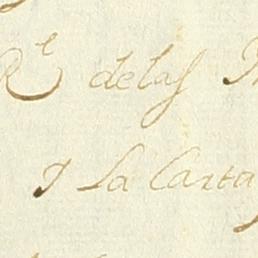 R.ᵉ de las
Y La Carta